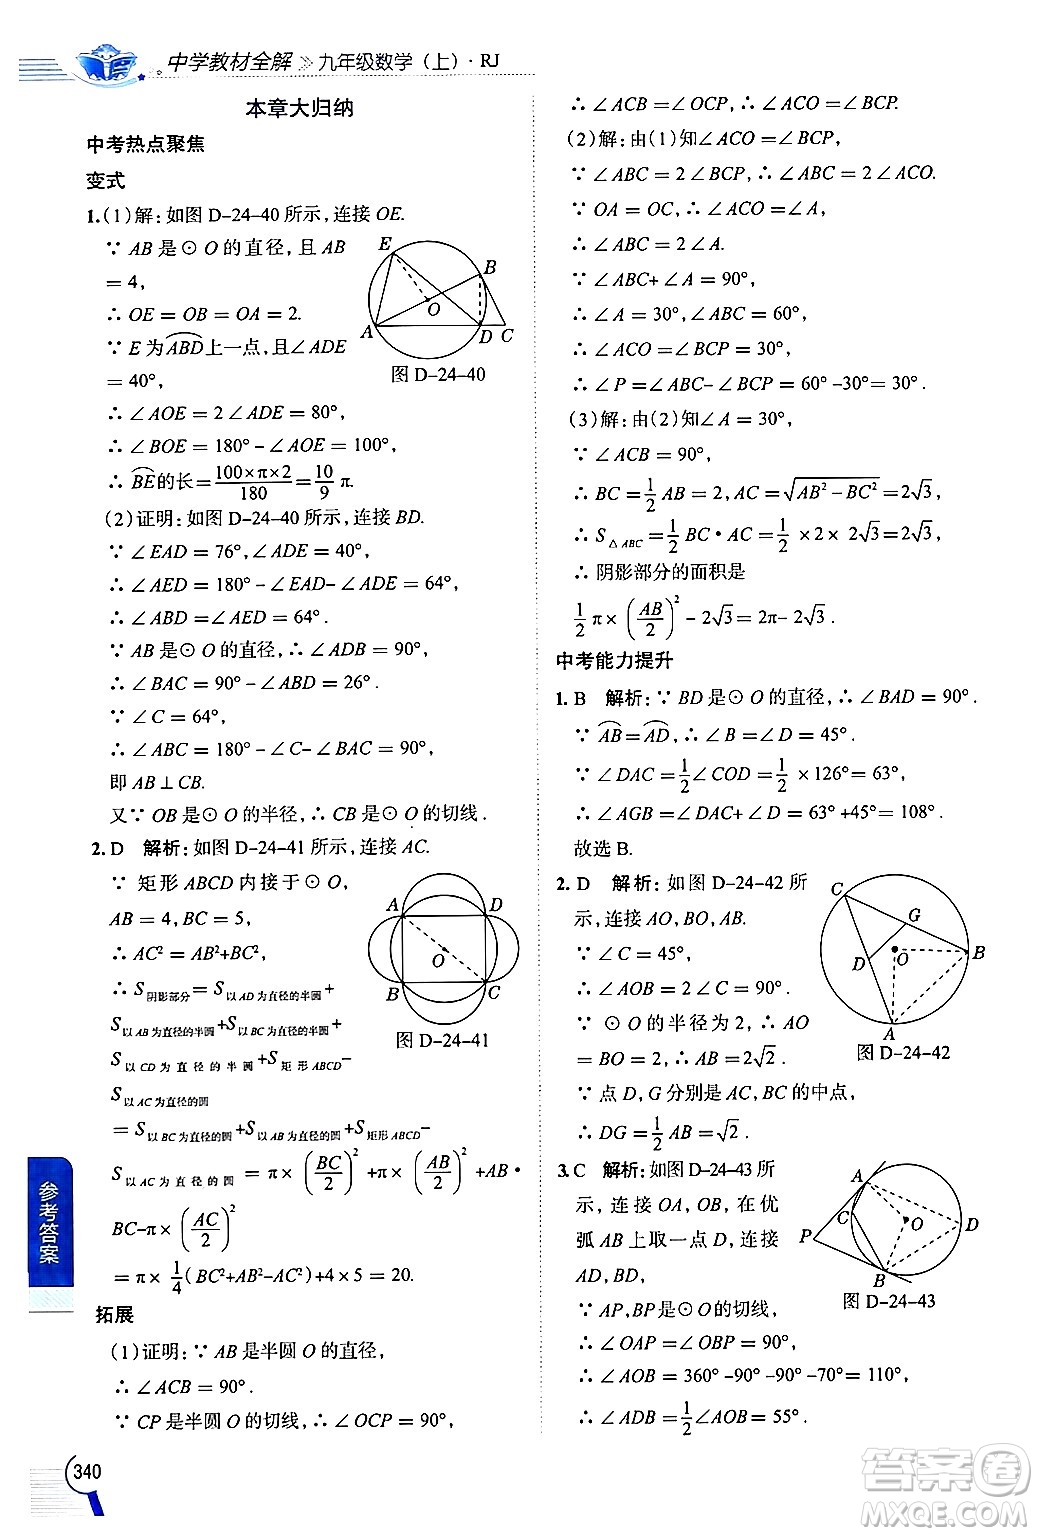 中学教材全解 » 九年级数学（上）· RJ
本章大归纳
中考热点聚焦
变式
1.(1)解：如图 D-24-40 所示，连接 OE.
∵ AB 是 ⊙ O 的直径，且 AB
= 4,
∴ OE = OB = OA = 2.
∵ E 为 ABD 上一点，∠ADE
= 40°,
∴ ∠AOE = 2∠ADE = 80°,
∴ ∠BOE = 180° - ∠AOE = 100°,
∴ BE的长 = 100×π×2/180 = 10/9 π.
E B O A D C
图 D-24-40
(2)证明：如图 D-24-40 所示，连接 BD.
∵ ∠EAD = 76°, ∠ADE = 40°,
∴ ∠AED = 180° - ∠EAD - ∠ADE = 64°,
∴ ∠ABD = ∠AED = 64°.
∵ AB 是 ⊙ O 的直径，∴ ∠ADB = 90°,
∴ ∠BAC = 90° - ∠ABD = 26°.
∵ ∠C = 64°,
∴ ∠ABC = 180° - ∠C - ∠BAC = 90°,
即 AB ⊥ CB.
又∵ OB 是 ⊙ O 的半径，∴ CB 是 ⊙ O 的切线.
2. D 解析：如图 D-24-41 所示，连接 AC.
∵ 矩形 ABCD 内接于 ⊙ O,
AB = 4, BC = 5,
∴ AC² = AB² + BC².
∴ S阴影部分 = S以AD为直径的半圆 +
S以AB为直径的半圆 + S以BC为直径的半圆 +
S以CD为直径的半圆 + S矩形ABCD -
S以AC为直径的圆
= S以BC为直径的圆 + S以AB为直径的圆 + S矩形ABCD -
S以AC为直径的圆 = π × (BC/2)² + π × (AB/2)² + AB·
BC - π × (AC/2)²
= π × 1/4 (BC² + AB² - AC²) + 4 × 5 = 20.
A D O B C
图 D-24-41
拓展
(1)证明：∵ AB 是半圆 O 的直径，
∴ ∠ACB = 90°.
∵ CP 是半圆 O 的切线，∴ ∠OCP = 90°,
∴ ∠ACB = ∠OCP, ∴ ∠ACO = ∠BCP.
(2)解：由(1)知∠ACO = ∠BCP,
∵ ∠ABC = 2∠BCP, ∴ ∠ABC = 2∠ACO.
∵ OA = OC, ∴ ∠ACO = ∠A,
∴ ∠ABC = 2∠A.
∵ ∠ABC + ∠A = 90°,
∴ ∠A = 30°, ∠ABC = 60°,
∴ ∠ACO = ∠BCP = 30°,
∴ ∠P = ∠ABC - ∠BCP = 60° - 30° = 30°.
(3)解：由(2)知∠A = 30°.
∵ ∠ACB = 90°,
∴ BC = 1/2 AB = 2, AC = √(AB² - BC²) = 2√3,
∴ S△ABC = 1/2 BC·AC = 1/2 × 2 × 2√3 = 2√3,
∴ 阴影部分的面积是
1/2 π × (AB/2)² - 2√3 = 2π - 2√3.
中考能力提升
1. B 解析：∵ BD 是 ⊙ O 的直径，∴ ∠BAD = 90°.
∵ AB = AD, ∴ ∠B = ∠D = 45°.
∵ ∠DAC = 1/2 ∠COD = 1/2 × 126° = 63°,
∴ ∠AGB = ∠DAC + ∠D = 63° + 45° = 108°.
故选 B.
2. D 解析：如图 D-24-42 所
示，连接 AO, BO, AB.
∵ ∠C = 45°,
∴ ∠AOB = 2∠C = 90°.
∵ ⊙ O 的半径为 2, ∴ AO
= BO = 2, ∴ AB = 2√2.
∵ 点 D, G 分别是 AC, BC 的中点，
∴ DG = 1/2 AB = √2.
C G D O B A
图 D-24-42
3. C 解析：如图 D-24-43 所
示，连接 OA, OB, 在优
弧 AB 上取一点 D, 连接
AD, BD,
∵ AP, BP 是 ⊙ O 的切线，
∴ ∠OAP = ∠OBP = 90°,
∴ ∠AOB = 360° - 90° - 90° - 70° = 110°,
∴ ∠ADB = 1/2 ∠AOB = 55°.
A C O D P B
图 D-24-43
参考答案
340
答案圈
MXQE.COM